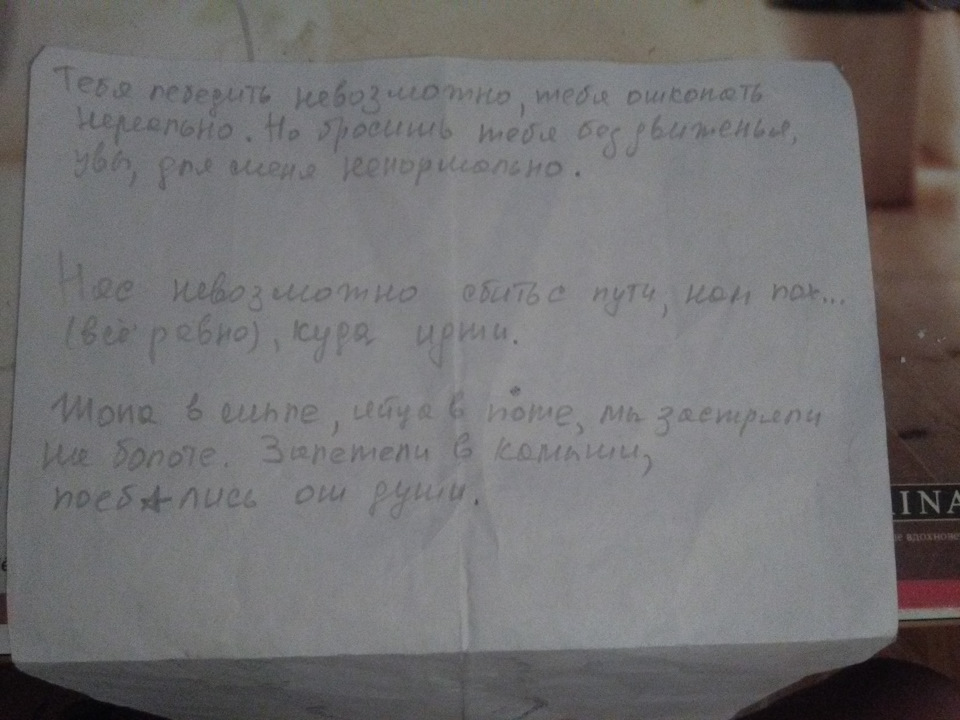 Тебя победить невозможно, тебя откопать
нереально. Но бросить тебя без движенья,
увы, для меня ненормально.
Нас невозможно сбить с пути, нам пох...
(всё равно), куда идти.
Жопа в мыле, яйца в поте, мы застряли
на болоте. Залетели в камыши,
поебались от души.
INA
е вдохнове